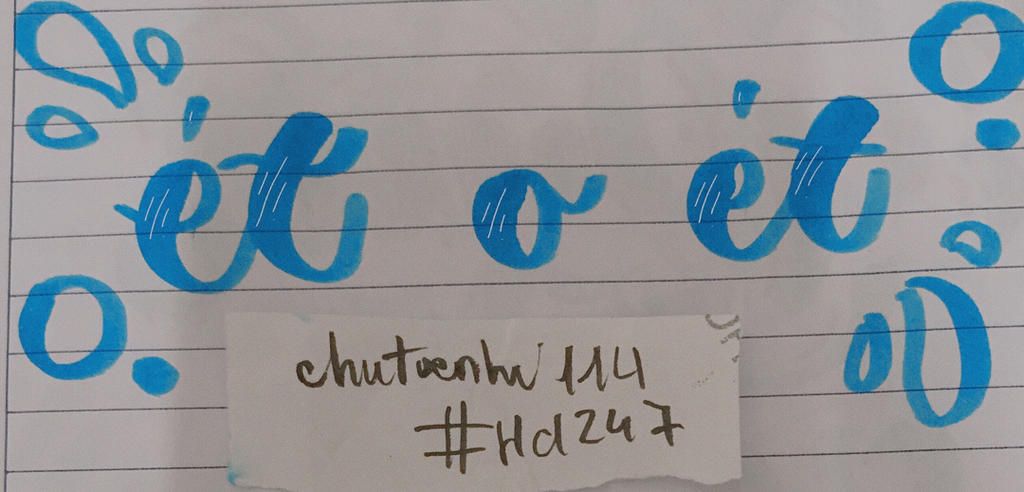 ét o ét
chutoenhi 114
#Hd247